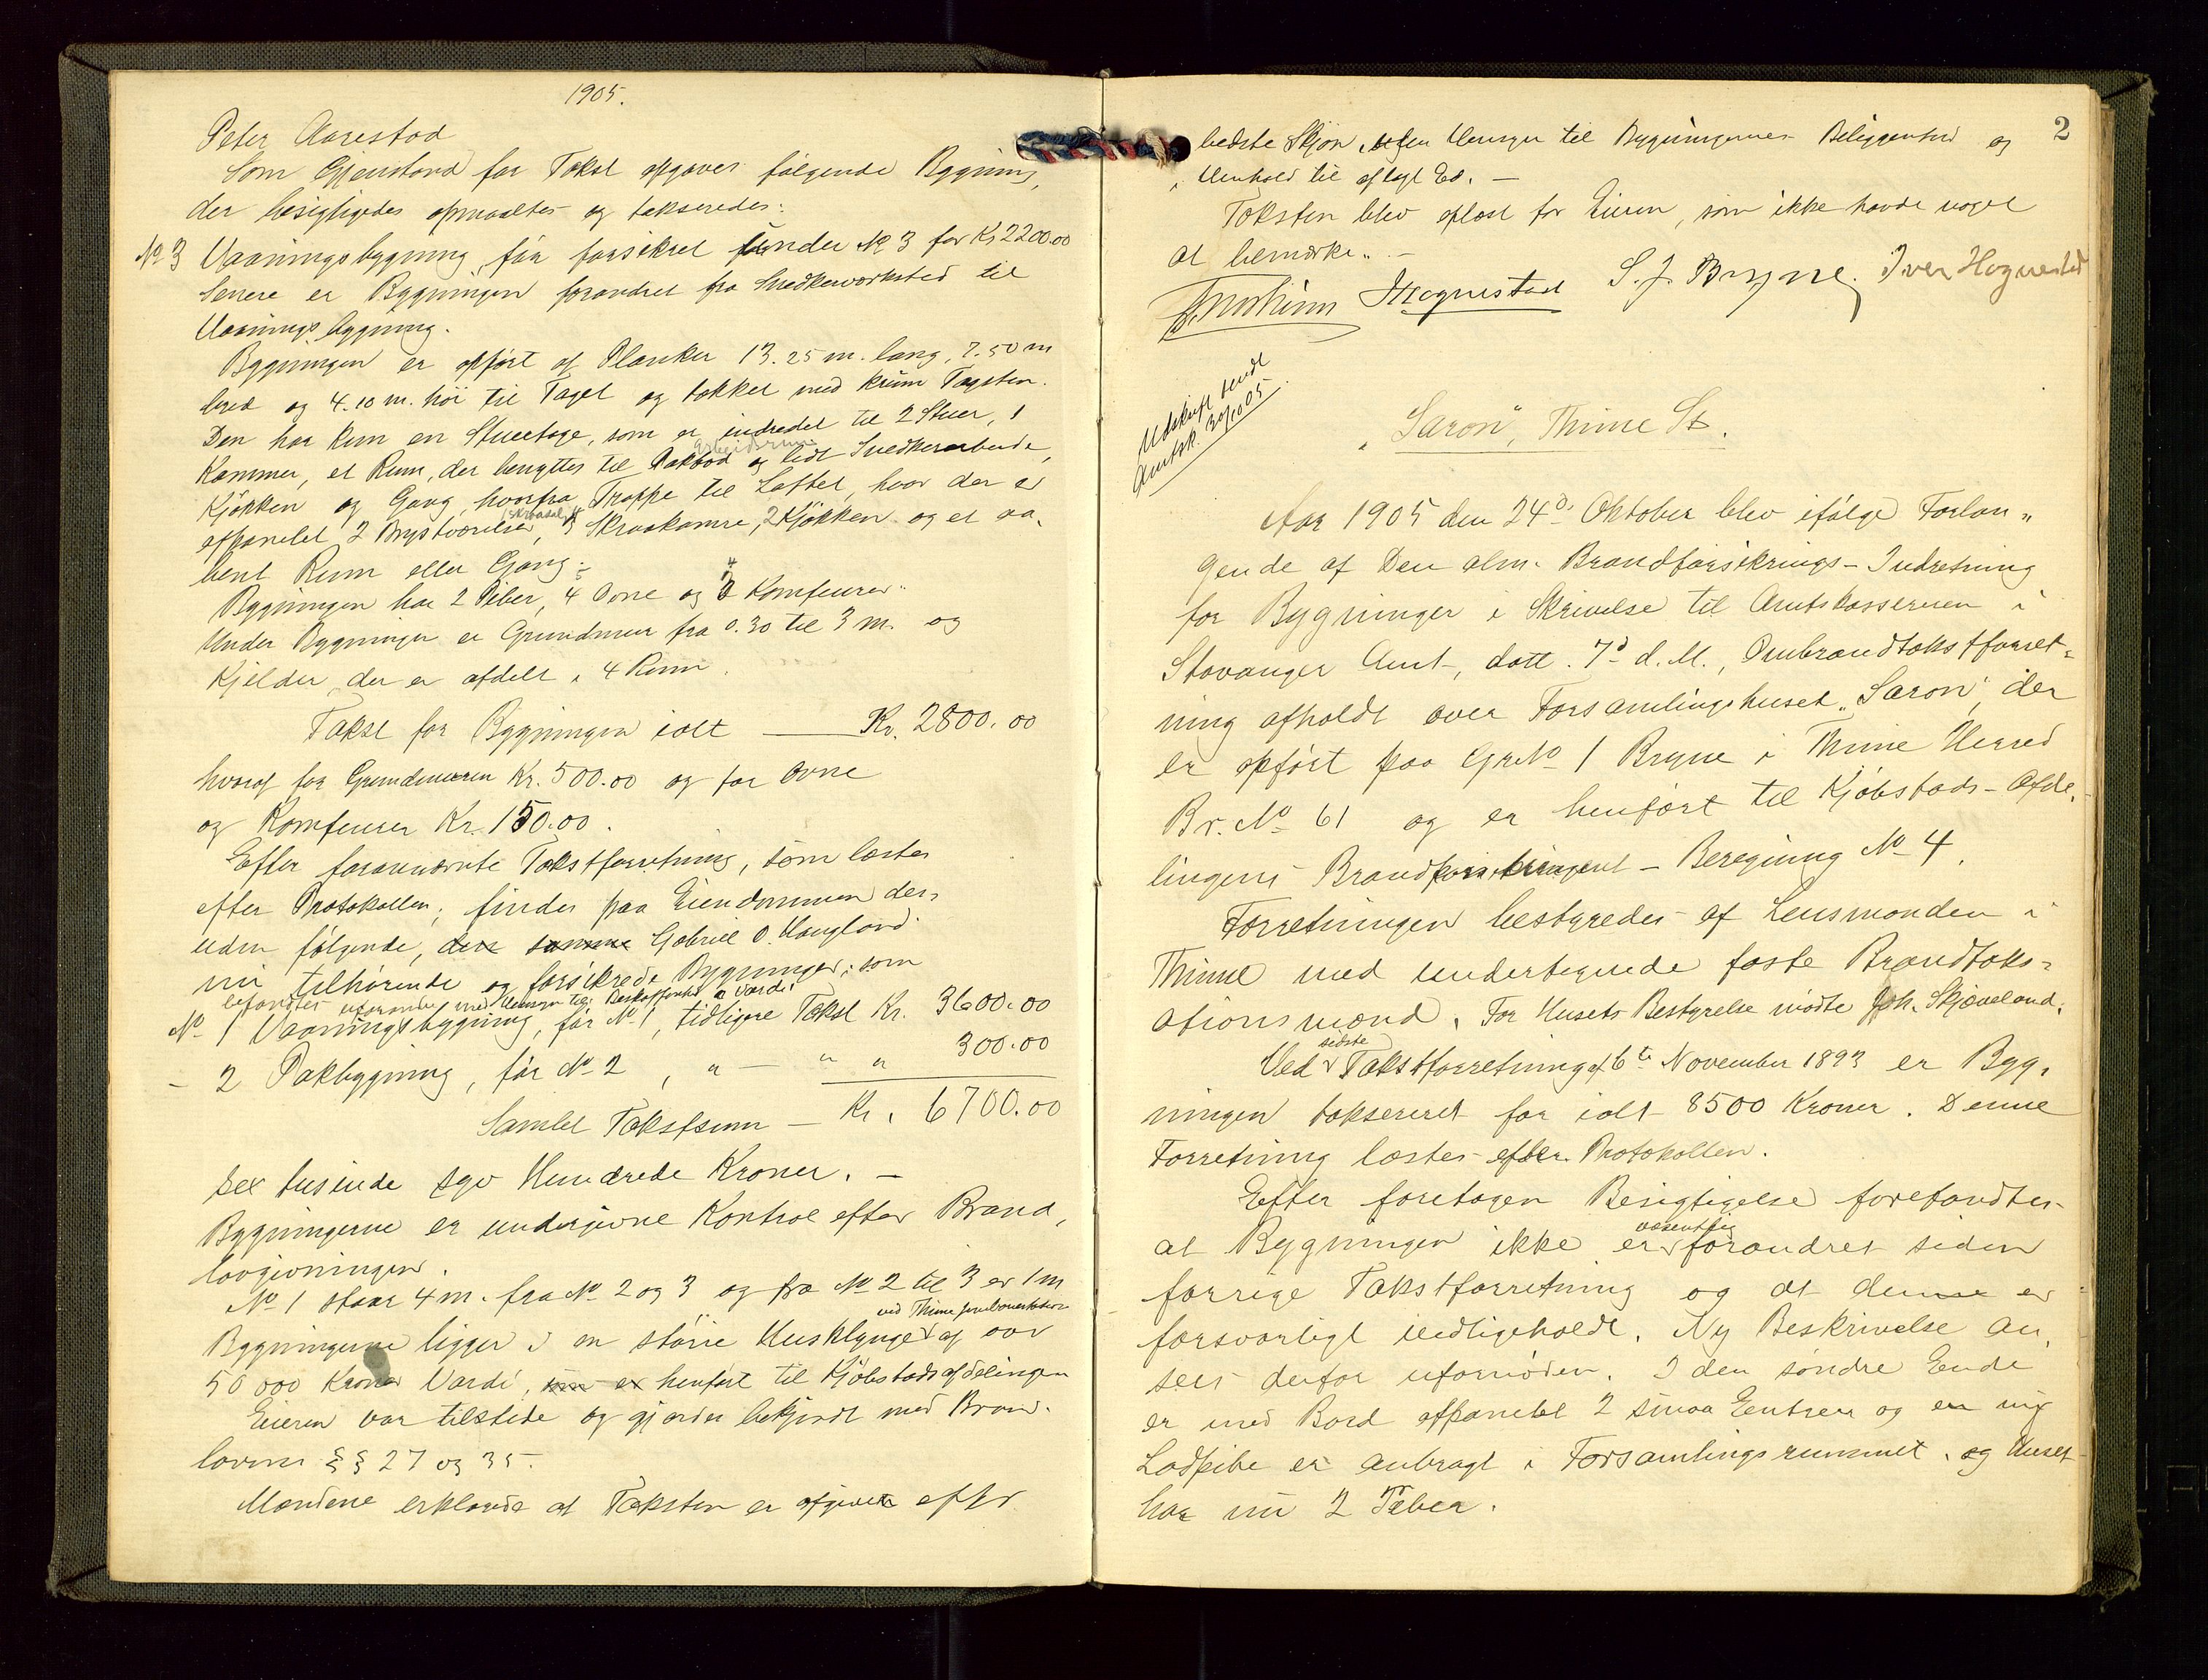 1905.
Peter Aarestad
Som Gjenstand for Takst opgaves følgende Bygning,
der besigtigedes opmaaltes og takseredes:
No 3 Vaaningsbygning, før forsikret under No 3 for Kr 2200.00
Senere er Bygningen forandret fra Snedkerværksted til
Vaaningsbygning.
Bygningen er opført af Planker 13.25 m. lang, 7.50 m
bred og 4.10 m. høi til Taget og tækket med krum Tagsten.
Den har kun en Stueetage, som er indredet til 2 Stuer, 1
Kammer, et Rum, der benyttes til Pakbod og lidt Snedkerarbeide,
Kjøkken og Gang, hvorfra Trappe til Loftet, hvor der er
afpanelet 2 Brystværelser, Skraakamre, 2 Kjøkken og et aa-
bent Rum eller Gang.
Bygningen har 2 Piber, 4 Ovne og 3 Komfeurer.
Under Bygningen er Grundmur fra 0.30 til 3 m. og
Kjelder der er afdelt i 4 Rum.
Takst for Bygningen ialt — Kr. 2800.00
hvoraf for Grundmuren Kr. 500.00 og for Ovne
og Komfeurer Kr. 150.00.
Efter forannævnte Takstforretning, som læstes
efter Protokollen, findes paa Eiendommen des-
uden følgende, den samme Gabriel O. Haugland
nu tilhørende og forsikrede Bygninger, som
befandtes uforandr. med Hensyn til Beskaffenhed & Værdi
No 1 Vaaningsbygning, før No 1, tidligere Takst Kr. 3600.00
- 2 Pakbygning, før No 2, " — " " 300.00
Samlet Takstsum — Kr. 6700.00
sex tusinde syv Hundrede Kroner. —
Bygningerne er undergivne Kontrol efter Brand-
lovgivningen.
No 1 staar 4 m. fra No 2 og 3 og fra No 2 til 3 er 1 m
ved Thime Jernbanestation
Bygningerne ligger i en større Husklynge af over
50 000 Kroner Værdi, som er henført til Kjøbstadsafdelingen
Eieren var tilstede og gjordes bekjendt med Brand-
lovens §§ 27 og 35.
Mændene erklærede at Taksten er afgiven efter
2
bedste Skjøn, uden Hensyn til Bygningernes Beliggenhed og
i Henhold til aflagt Ed. —
Taksten blev oplæst for Eieren, som ikke havde noget
at bemærke. —
S. J. Bryne. Iver Hognestad
Udskrift sendt
Amtsk. 30/10 05.
"Saron", Thime St.
Aar 1905 den 24de Oktober blev ifølge Forlan-
gende af Den alm. Brandforsikrings-Indretning
for Bygninger i Skrivelse til Amtskassereren i
Stavanger Amt, datt. 7de d.M., Ombrandtakstforret-
ning afholdt over Forsamlingshuset "Saron", der
er opført paa GrNo 1 Bryne i Thime Herred
Br. No 61 og er henført til Kjøbstads-Afde-
lingens Brandkontingent - Beregning No 4.
Forretningen bestyredes af Lensmanden i
Thime med undertegnede faste Brandtaks-
ationsmænd. For Husets Bestyrelse mødte Joh. Skjæveland.
sidste
Ved Takstforretning af 6te November 1893 er Byg-
ningen takseret for ialt 8500 Kroner. Denne
Forretning læstes efter Protokollen.
Efter foretagen Besigtigelse forefandtes
væsentlig
at Bygningen ikke er forandret siden
forrige Takstforretning og at denne er
forsvarligt vedligeholdt. Ny Beskrivelse an-
sees derfor ufornøden. I den søndre Ende
er med Bord afpanelet 2 smaa Entreer og en ny
Ladpibe er anbragt i Forsamlingsrummet, og Huset
har nu 2 Piber.